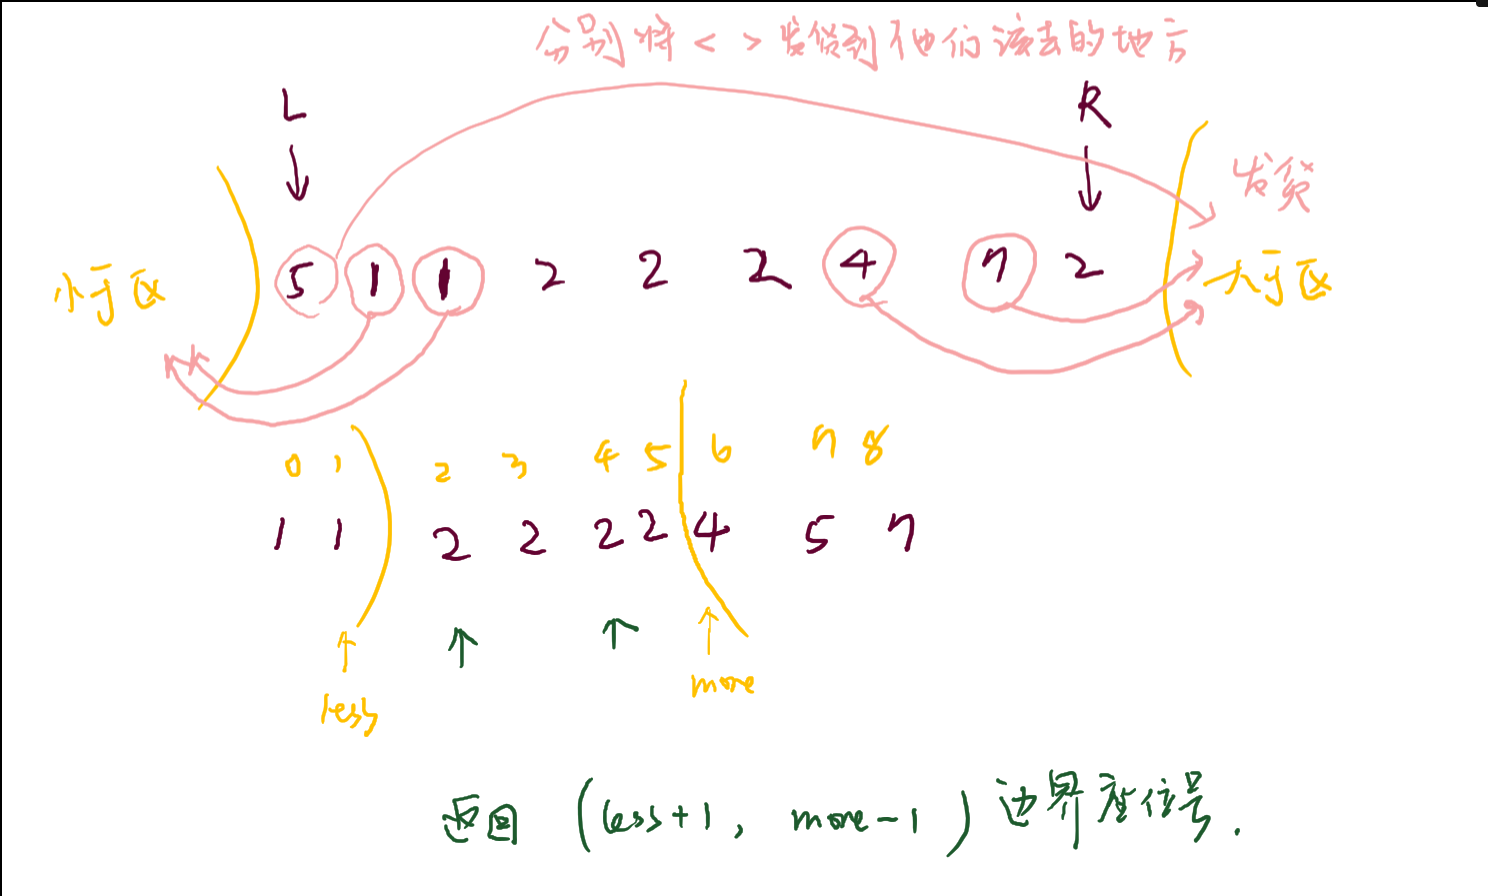 分别将 < > 发货到他们该去的地方
L R
发货
小于区 5 1 1 2 2 2 4 7 2 大于区
0 1 2 3 4 5 6 7 8
1 1 2 2 2 2 4 5 7
less more
返回 (less+1, more-1) 边界座位号.